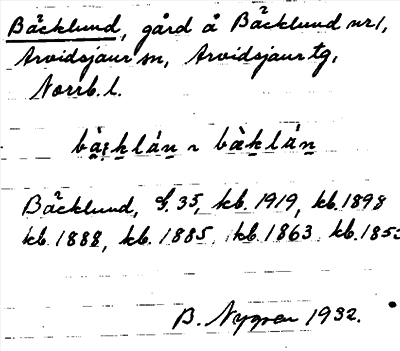 Bäcklund, gård å Bäcklund nr 1,
Arvidsjaur sn, Arvidsjaur tg,
Norrb. l.
bàklán ~ bàklán
Bäcklund, f. 35, kb. 1919, kb. 1898
kb. 1888, kb. 1885, kb. 1863, kb. 1853
B. Nygren 1932.